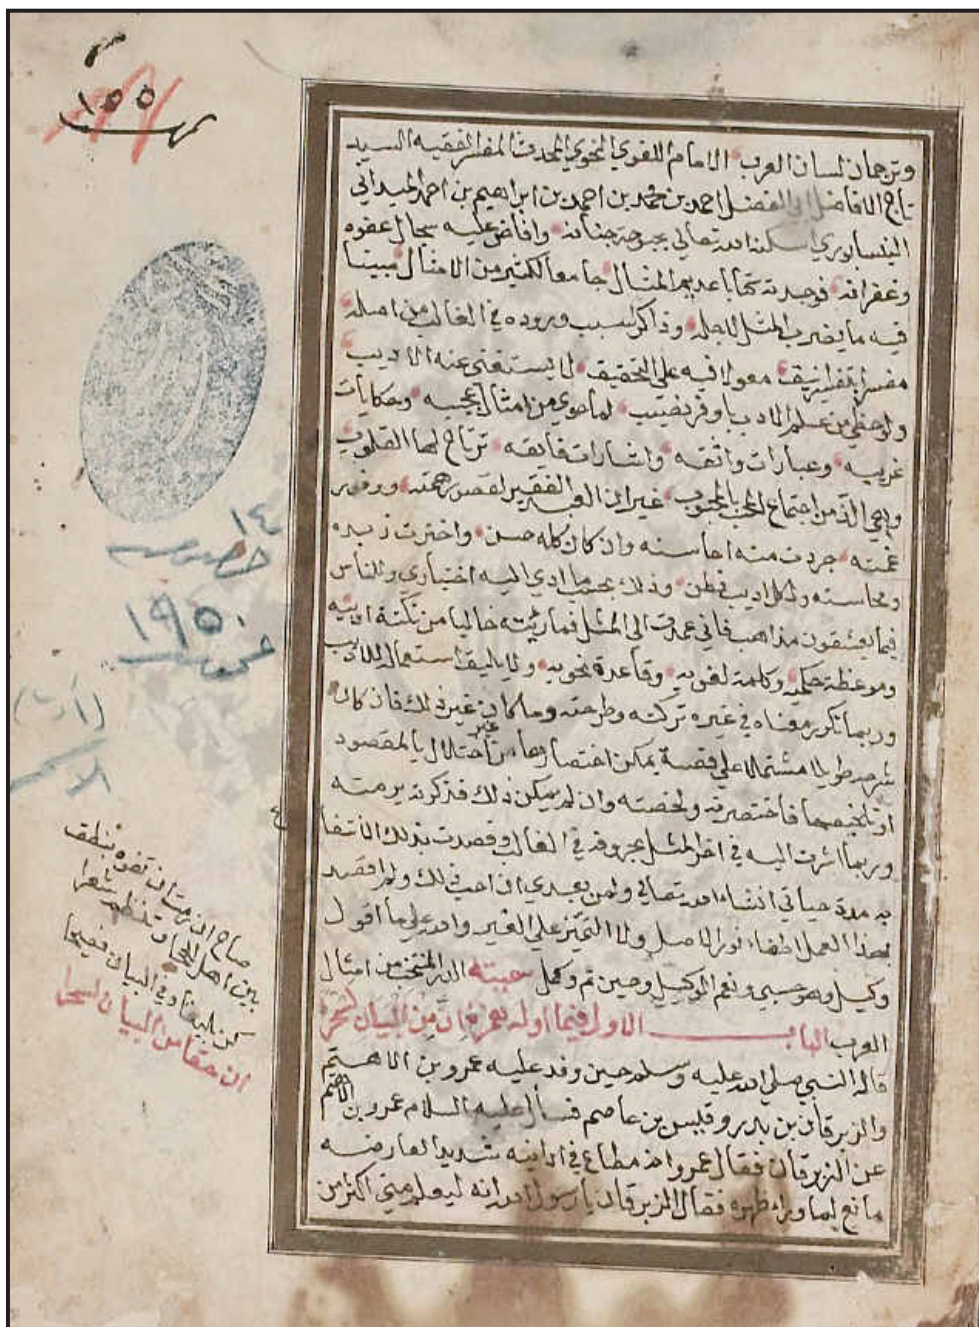 وترجمان لسان العرب الامام اللغوي النحوي المحدث المفسر الفقيه السيد
تاج الافاضل ابي الفضل احمد بن محمد بن احمد بن ابراهيم بن احمد الميداني
النيسابوري اسكنه الله تعالي بحبوحة جنانه وافاض عليه سجال عفوه
وغفرانه فوجدته كتابا عديم المثال جامعا لكثير من الامثال مبينا
فيه ما يضرب المثل لاجله وذاكر لسبب وروده في الغالب من اصله
مفسرا معولا فيه علي التحقيق لا يستغني عنه الاديب
ولو حظي من علم الادب باوفر نصيب لما حوي من امثال عجيبه وحكايات
غريبه وعبارات واشارات فايقه ترتاح لها القلوب
وهي الذ من اجتماع المحب بالمحبوب غير ان العبد الفقير لقصور همته ووفور
غمته جردت منه احاسنه وان كان كله حسن واخترت زبده
ومحاسنه ولكل اديب فطن وذلك بحسب ما ادي اليه اختياري وللناس
فيما يعشقون مذاهب فاني عمدت الي المثل فما رايته خاليا من نكتة ادبيه
وموعظة حكميه وكلمة لغويه وقاعدة نحويه ولا يليق استعماله للاديب
وربما تكرر معناه في غيره تركته وطرحته وما كان غير ذلك فان كان
شرحه طويلا مشتملا علي قصة يمكن اختصارها من غير اختلال بالمقصود
او تلخيصها فاختصرته ولخصته وان لم يمكن ذلك فذكرته برمته
وربما اشرت اليه في اخر المثل بحروفه في الغالب وقصدت بذلك الانتفا
به مدة حياتي انشاء الله تعالي ولمن بعدي ان احب ذلك ولم اقصد
بهذا العمل اطفاء نور الاصل ولا التميز علي الغير والله علي ما اقول
وكيل وهو حسبي ونعم الوكيل وحين تم وكمل سميته الدر المنتخب من امثال
العرب الباب الاول فيما اوله همزة ان من البيان لسحرا
قاله النبي صلي الله عليه وسلم حين وفد عليه عمرو بن الاهتم
والزبرقان بن بدر وقيس بن عاصم فسأل عليه السلام عمرو بن الاهتم
عن الزبرقان فقال عمرو انه مطاع في ادانيه شديد العارضه
مانع لما وراء ظهره فقال الزبرقان يا رسول الله انه ليعلم مني اكثر من
١٥٥
١٤
خصوصيه
١٩٥٠
عموميه
صاح ان رمت ان تفوه بنطق
بين اهل الحجا وتنظم شعرا
كن بليغا وفي البيان فصيحا
ان حقا من البيان لسحرا